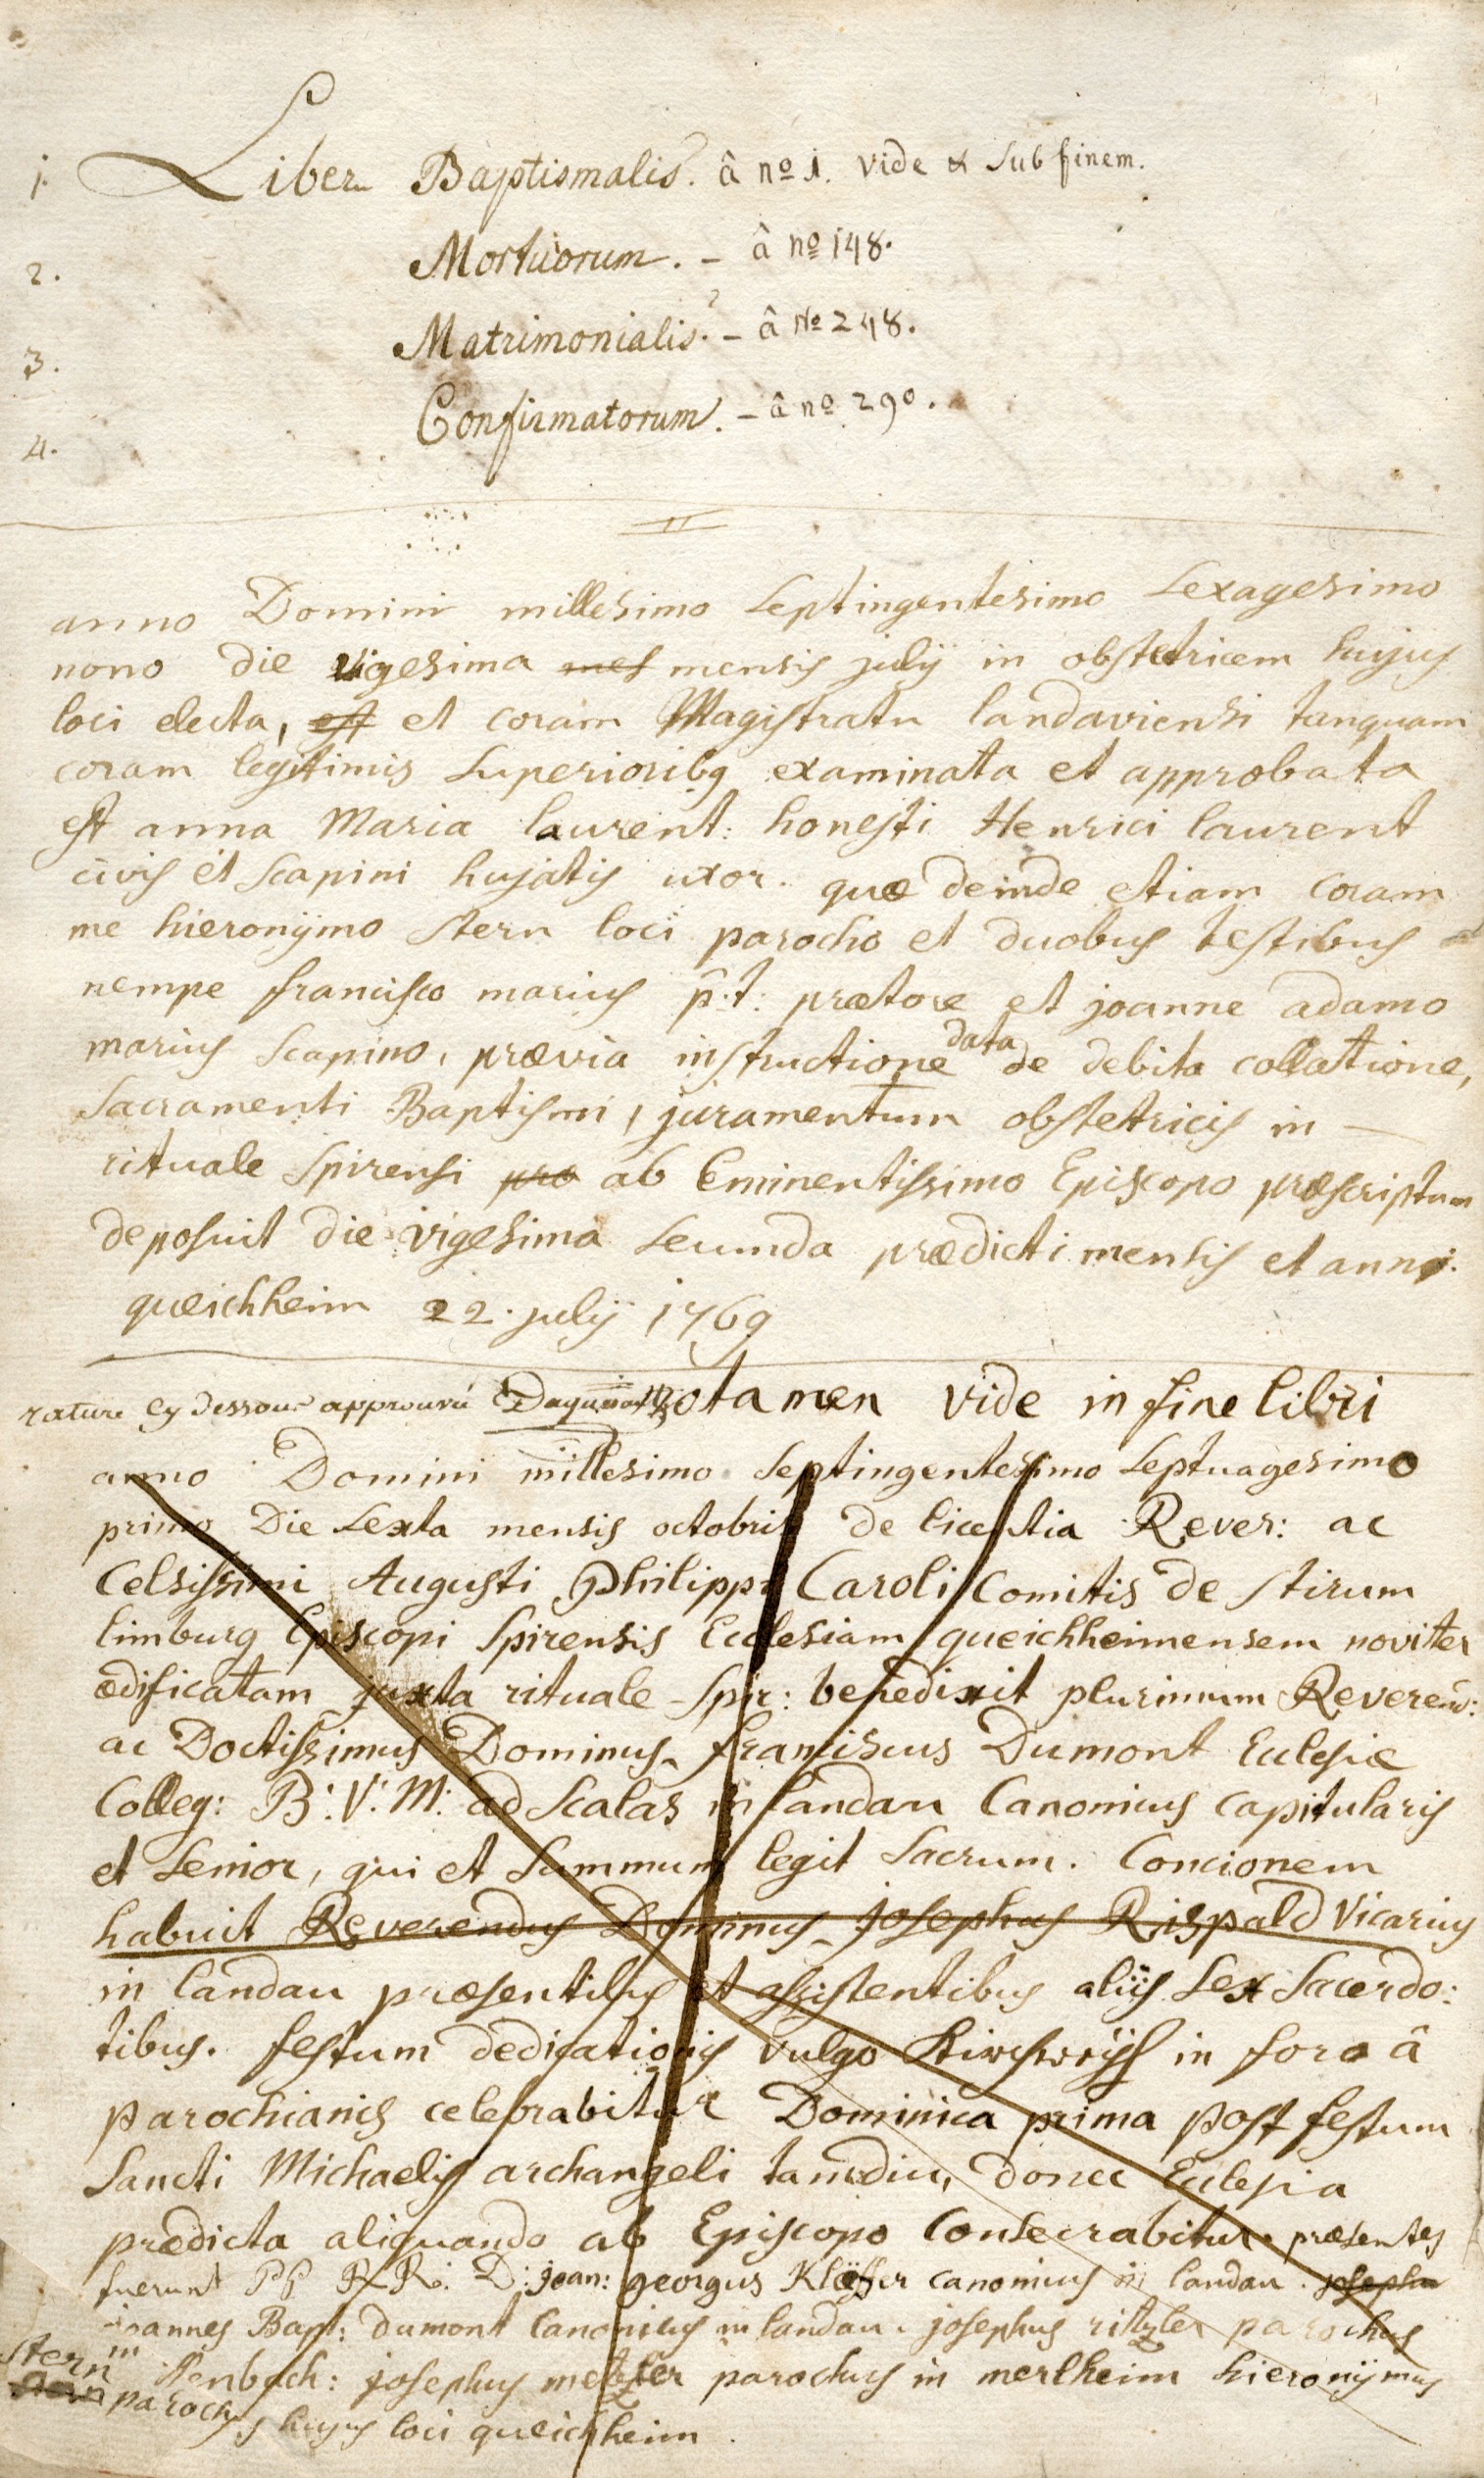 1. Liber Baptismalis. â nº 1. vide & sub finem.
2. Mortuorum. - â nº 148.
3. Matrimonialis. - â Nº 248.
4. Confirmatorum. - â nº 290.
anno Domini millesimo septingentesimo sexagesimo
nono die vigesima mes mensis julij in obstetricem hujus
loci electa, est et coram Magistratu landaviensi tanquam
coram legitimis superioribq examinata et approbata
est anna Maria laurent: honesti Henrici laurent
civis et scapini hujatis uxor. quæ deinde etiam coram
me hieronÿmo stern loci parocho et duobus testibus
nempe francisco marius p.t: prætore et joanne adamo
marius scapino, prævia instructione data de debita collatione,
sacramenti Baptismi, juramentum obstetricis in —
rituale spirensi pro ab Eminentissimo Episcopo præscriptum
deposuit die vigesima secunda prædicti mensis et anni.
queichheim 22. julij 1769
rature cy dessous approuvé Nota men vide in fine libri
anno Domini millesimo septingentesimo septuagesimo
primo Die sexta mensis octobris de licentia Rever: ac
Celsissimi Augusti Philippi Caroli Comitis de stirum
limburg Episcopi spirensis Ecclesiam queichheimensem noviter
ædificatam juxta rituale spir: benedixit plurimum Reverend:
ac Doctissimus Dominus franciscus Dumont Eclesiæ
Colleg: B: V: M: ad scalas in landau Canonicus capitularis
et senior, qui et summum legit sacrum. Concionem
habuit Reverendus Dominus josephus Rispald vicarius
in landau præsentibus et assistentibus aliis sex sacerdo:
tibus. festum dedicationis vulgo in foro â
parochianis celebrabitur Dominica prima post festum
sancti Michaelis archangeli tamdiu, donec Eclesia
prædicta aliquando ab Episcopo Consecrabitur. præsentes
fuerunt PP RR. D: joan: georgus Klöffer canonicus in landau. josephu
joannes Bapt: dumont Canonicus in landau. josephus ritzler parochus
in josephus metzler parochus in merlheim hieronÿmus
stern parochus hujus loci queichheim.